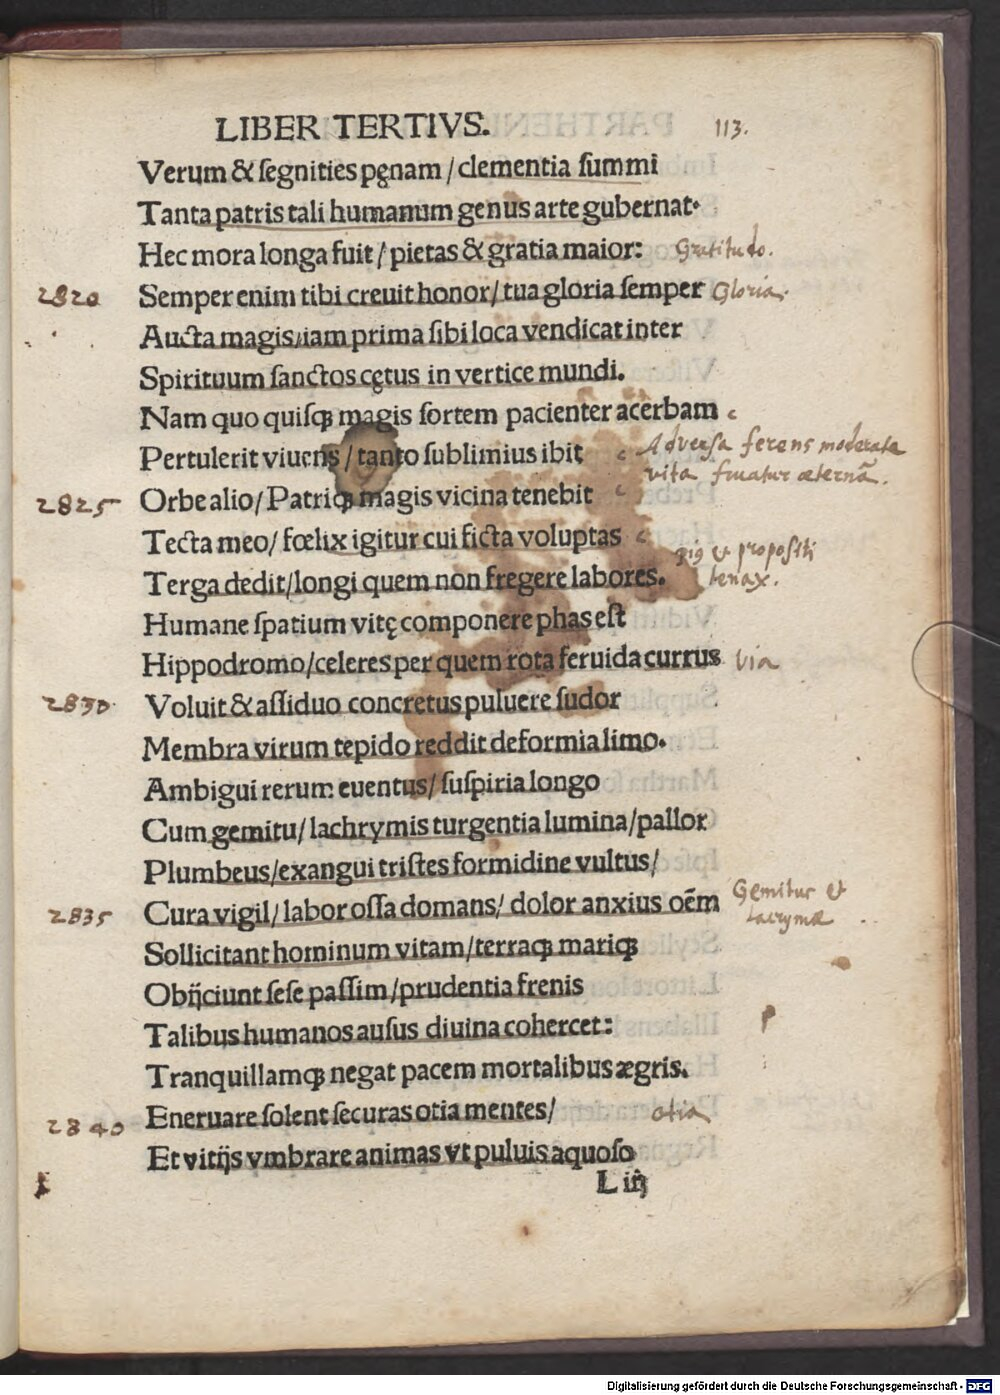 LIBER TERTIVS. 113.
Verum & segnities pęnam / clementia summi
Tanta patris tali humanum genus arte gubernat.
Hec mora longa fuit / pietas & gratia maior: Gratitudo.
2820 Semper enim tibi creuit honor / tua gloria semper Gloria.
Aucta magis / iam prima sibi loca vendicat inter
Spirituum sanctos cętus in vertice mundi.
Nam quo quisqꝫ magis sortem pacienter acerbam
Pertulerit viuens / tanto sublimius ibit Adversa ferens moderate
vita fruatur æternā.
2825 Orbe alio / Patriqꝫ magis vicina tenebit
Tecta meo / fœlix igitur cui ficta voluptas
Terga dedit / longi quem non fregere labores. et propositi
tenax.
Humane spatium vitę componere phas est
Hippodromo / celeres per quem rota feruida currus via
2830 Voluit & assiduo concretus puluere sudor
Membra virum tepido reddit deformia limo.
Ambigui rerum euentus / suspiria longo
Cum gemitu / lachrymis turgentia lumina / pallor
Plumbeus / exangui tristes formidine vultus /
2835 Cura vigil / labor ossa domans / dolor anxius oēm Gemitus et
lacrymæ
Sollicitant hominum vitam / terraqꝫ mariqꝫ
Obijciunt sese passim / prudentia frenis
Talibus humanos ausus diuina cohercet:
Tranquillamqꝫ negat pacem mortalibus ægris.
2840 Eneruare solent securas otia mentes / otia
Et vitijs vmbrare animas vt puluis aquoso
L iij
Digitalisierung gefördert durch die Deutsche Forschungsgemeinschaft - DFG